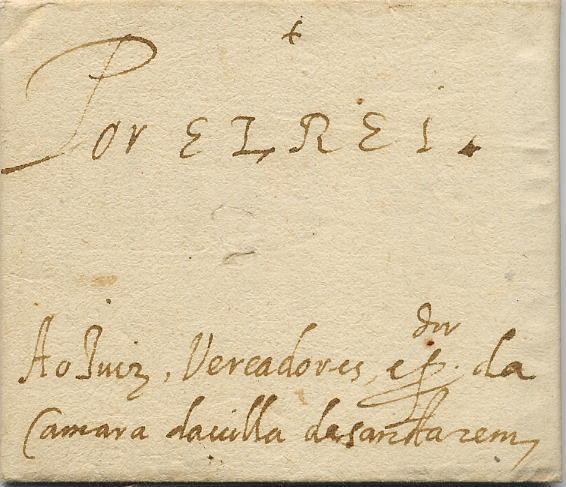 Por ELREI.
Ao Juiz, Vereadores, e p.dor da
Camara da uilla de santarem,